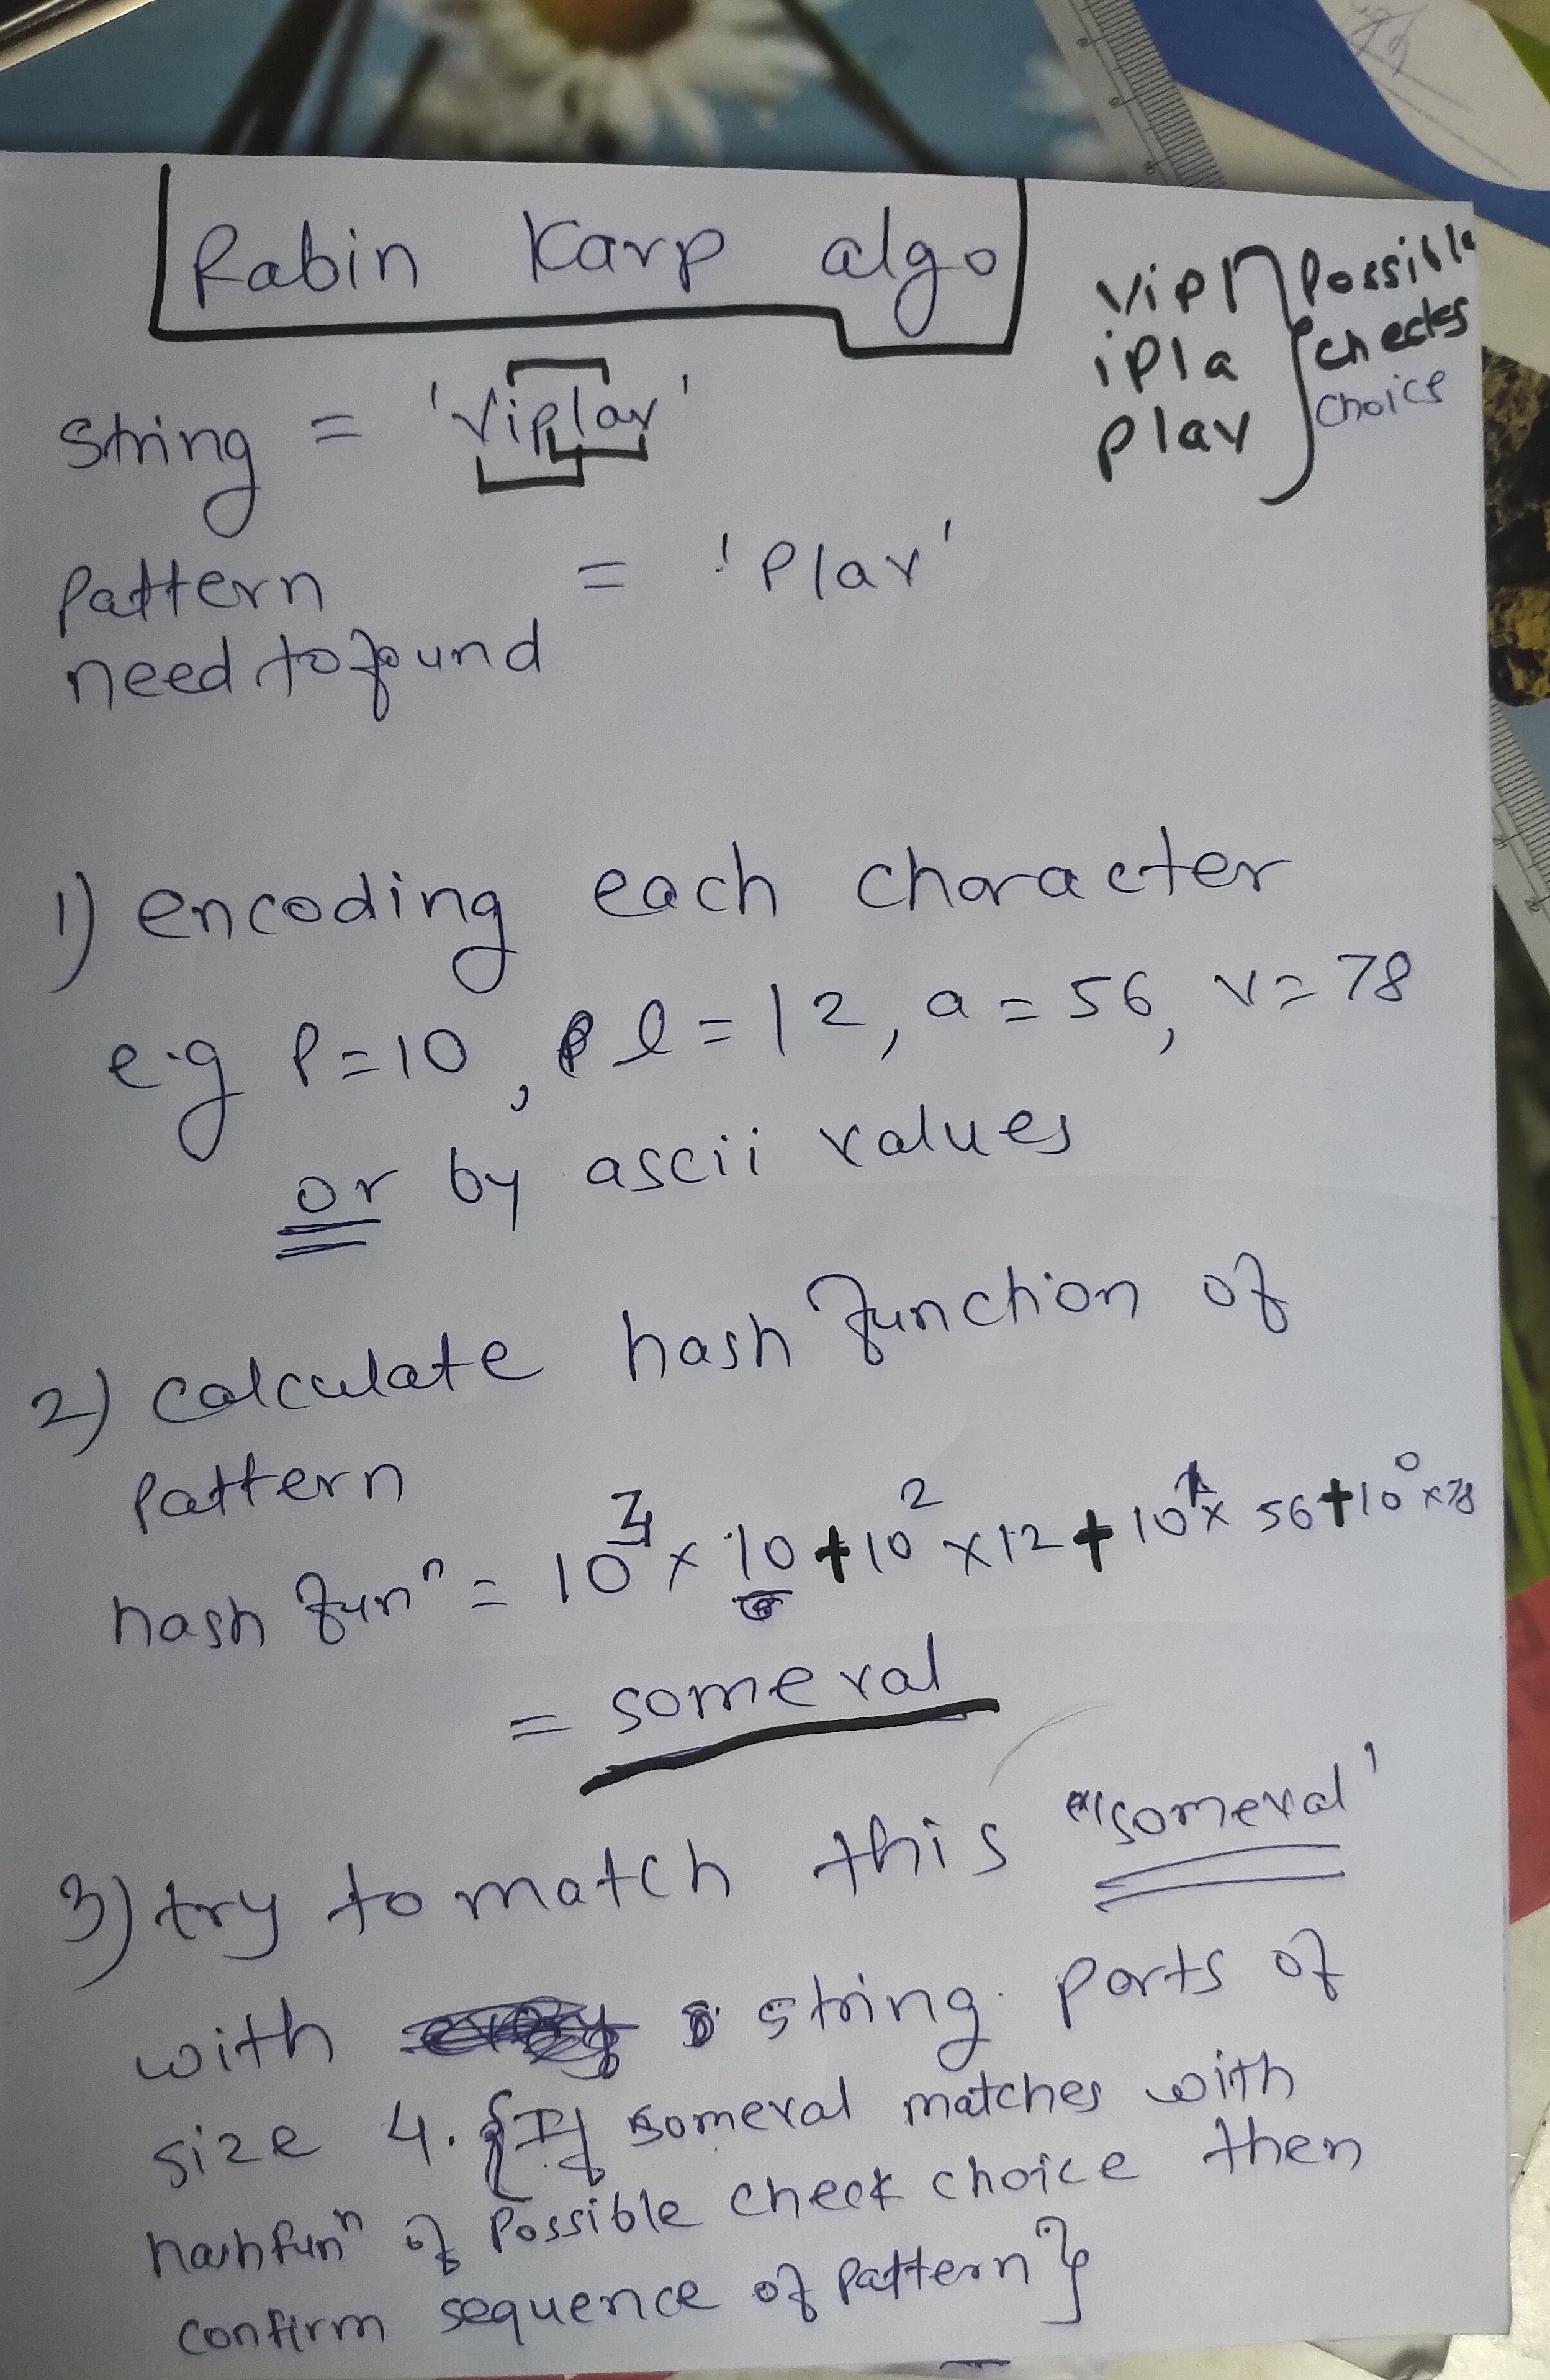 Rabin Karp algo
vipl
ipla
plav
Possible
checks
choice
String = 'viplav'
Pattern = 'Plav'
need to found
1) encoding each character
e.g P=10, l=12, a=56, v=78
or by ascii values
2) calculate hash function of
Pattern
hash funⁿ = 10³ x 10 + 10² x 12 + 10¹ x 56 + 10⁰ x 78
= someval
3) try to match this "someval'
with string parts of
size 4. {If someval matches with
hashfunⁿ of Possible check choice then
confirm sequence of Pattern}